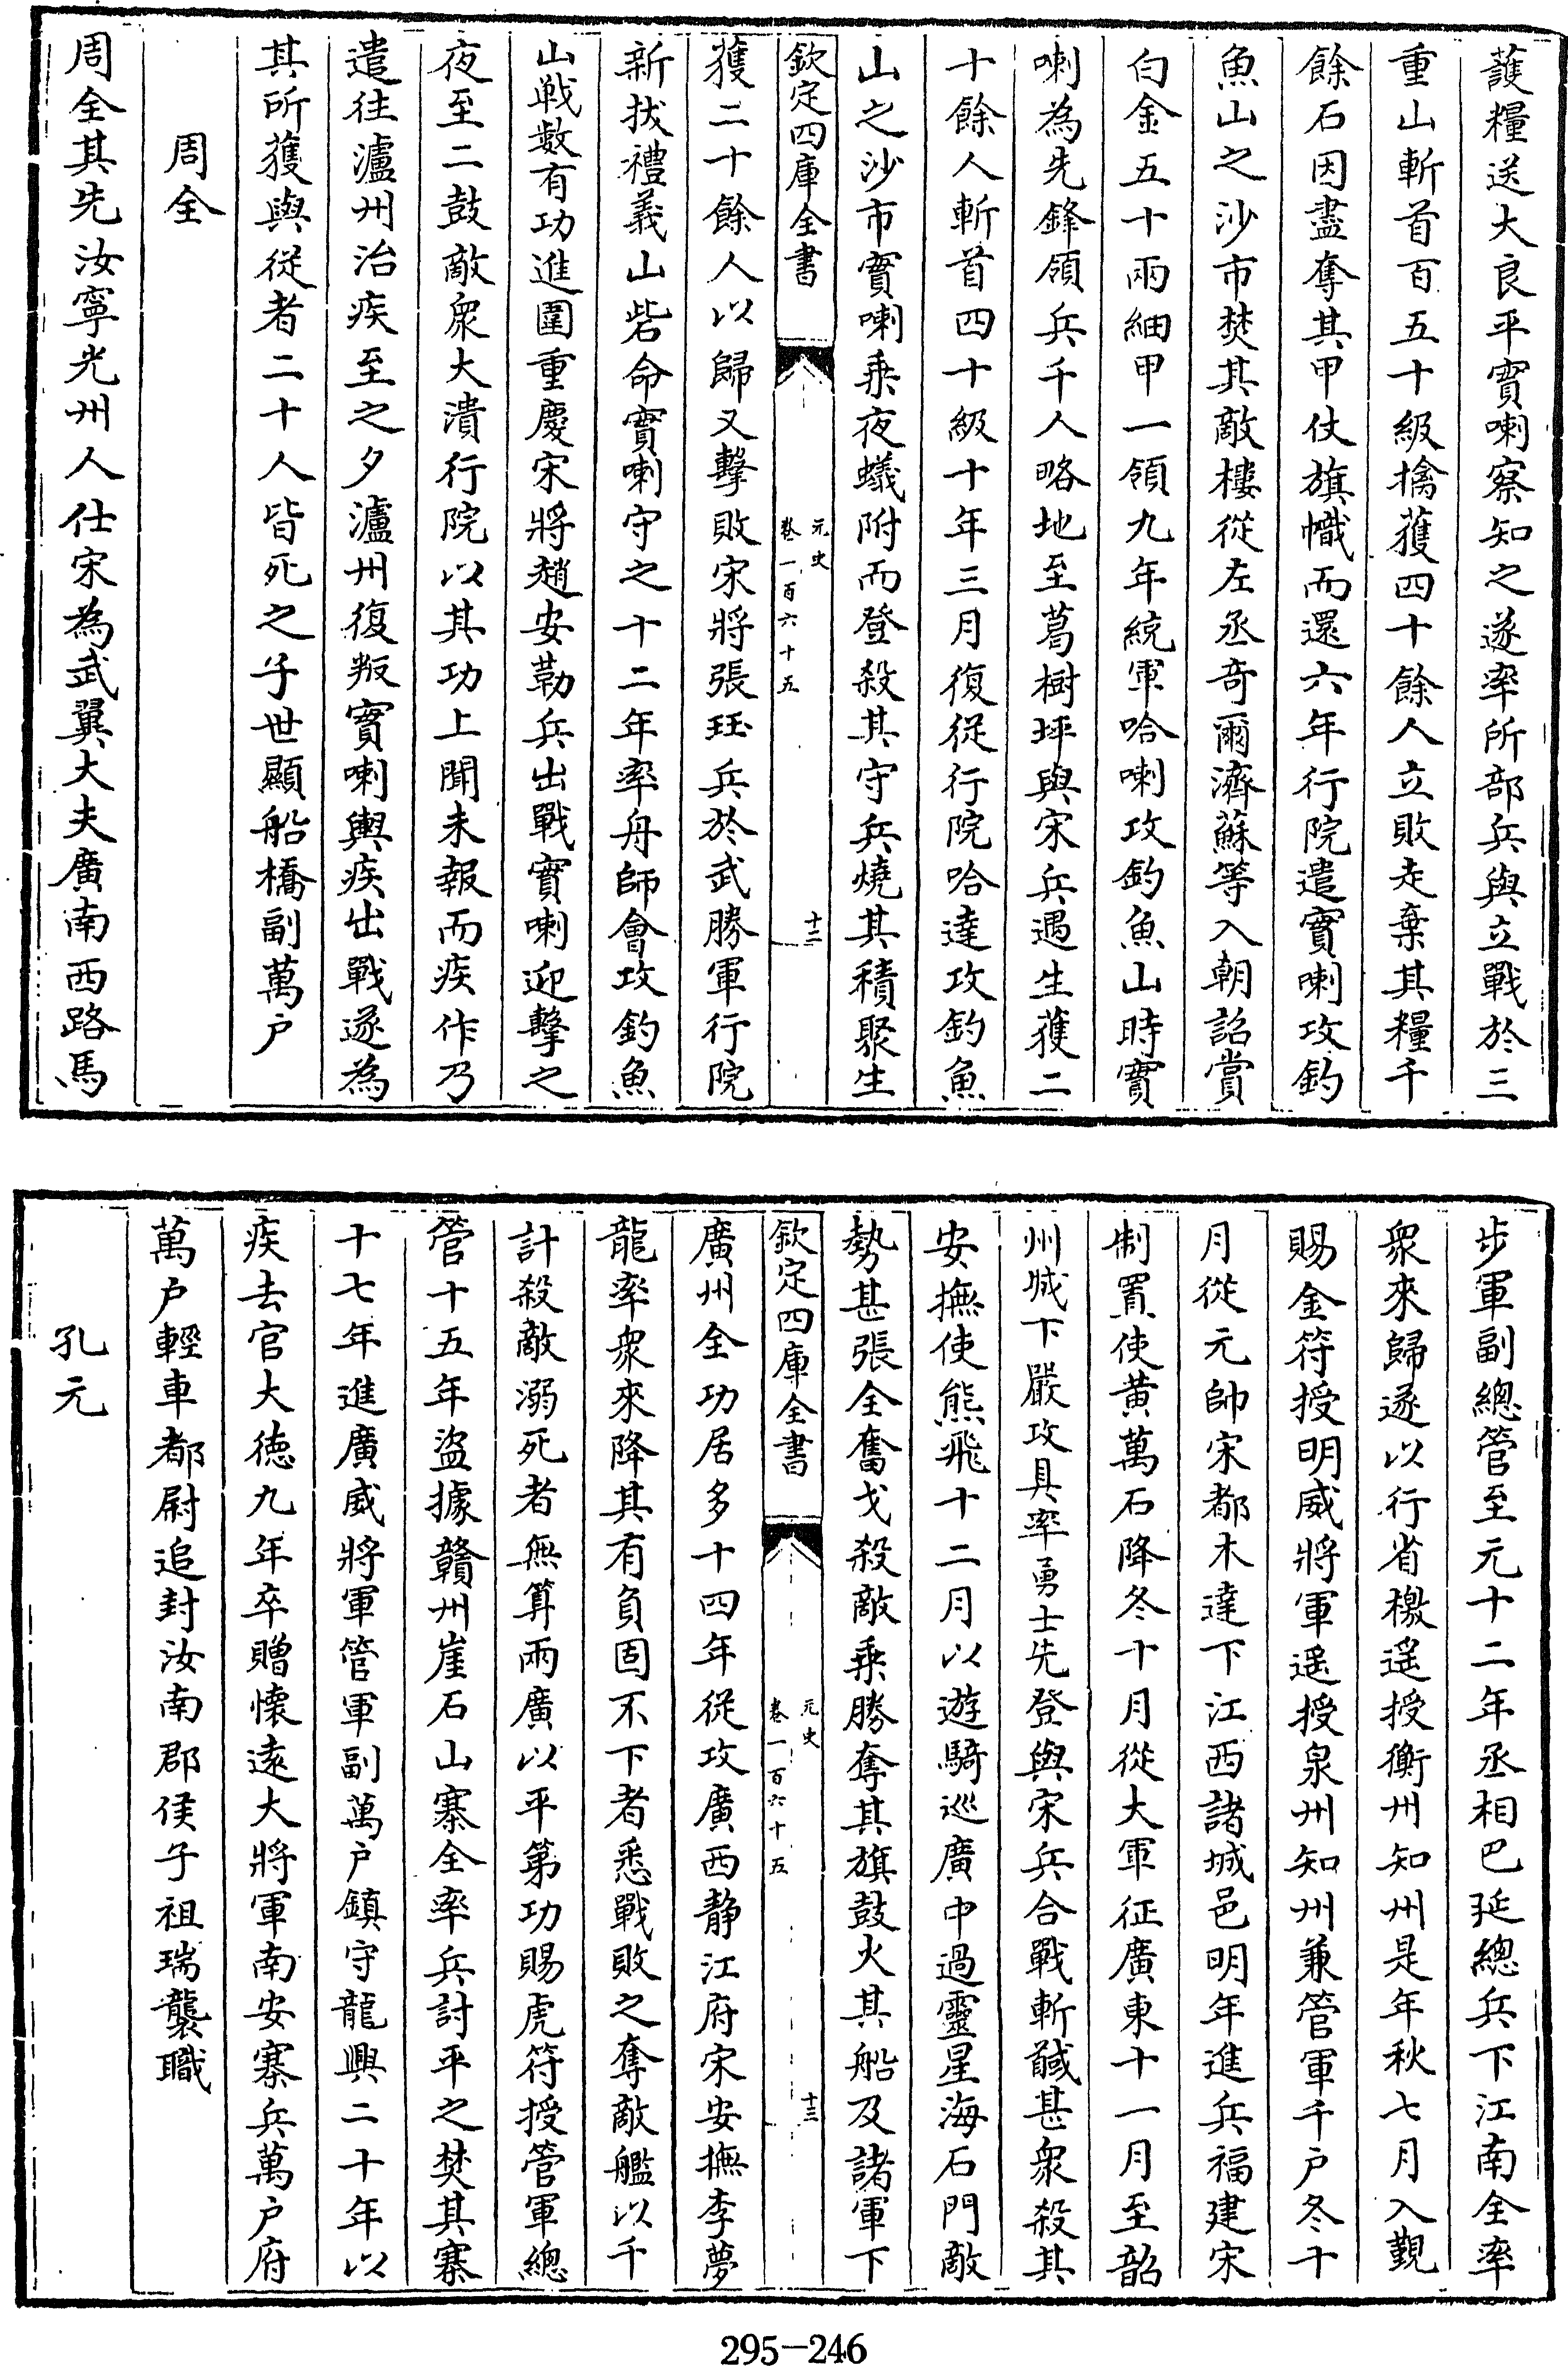 護糧送大良平寳喇察知之遂率所部兵與立戰於三
重山斬首百五十級擒獲四十餘人立敗走棄其糧千
餘石因盡奪其甲仗旗幟而還六年行院遣寳喇攻釣
魚山之沙市焚其敵樓從左丞奇爾濟蘇等入朝詔賞
白金五十兩細甲一領九年統軍哈喇攻釣魚山時寳
喇為先鋒領兵千人略地至葛樹坪與宋兵遇生獲二
十餘人斬首四十級十年三月復從行院哈達攻釣魚
山之沙市寳喇乘夜蟻附而登殺其守兵燒其積聚生
欽定四庫全書
元史
卷一百六十五
十二
獲二十餘人以歸又擊敗宋將張珏兵於武勝軍行院
新拔禮義山砦命寳喇守之十二年率舟師會攻釣魚
山戰數有功進圍重慶宋將趙安勒兵出戰寳喇迎擊之
夜至二鼓敵衆大潰行院以其功上聞未報而疾作乃
遣往瀘州治疾至之夕瀘州復叛寳喇輿疾出戰遂為
其所獲與從者二十人皆死之子世顯船橋副萬户
周全
周全其先汝寧光州人仕宋為武翼大夫廣南西路馬
步軍副總管至元十二年丞相巴延總兵下江南全率
衆來歸遂以行省檄遥授衡州知州是年秋七月入覲
賜金符授明威將軍遥授泉州知州兼管軍千户冬十
月從元帥宋都木達下江西諸城邑明年進兵福建宋
制置使黄萬石降冬十月從大軍征廣東十一月至韶
州城下嚴攻具率勇士先登與宋兵合戰斬馘甚衆殺其
安撫使熊飛十二月以遊騎巡廣中過靈星海石門敵
勢甚張全奮戈殺敵乘勝奪其旗鼓火其船及諸軍下
欽定四庫全書
元史
卷一百六十五
十三
廣州全功居多十四年從攻廣西静江府宋安撫李夢
龍率衆來降其有負固不下者悉戰敗之奪敵艦以千
計殺敵溺死者無算兩廣以平第功賜虎符授管軍總
管十五年盜據贛州崖石山寨全率兵討平之焚其寨
十七年進廣威將軍管軍副萬户鎮守龍興二十年以
疾去官大德九年卒贈懷遠大將軍南安寨兵萬户府
萬户輕車都尉追封汝南郡侯子祖瑞襲職
孔元
295-246